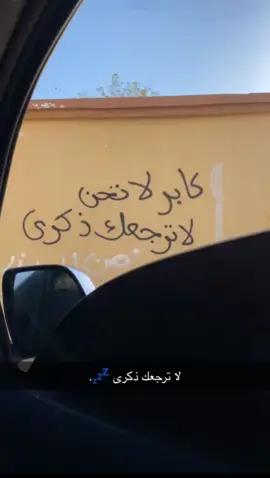 كابر لا تحن
لا ترجعك ذكرى
لا ترجعك ذكرى 💤.